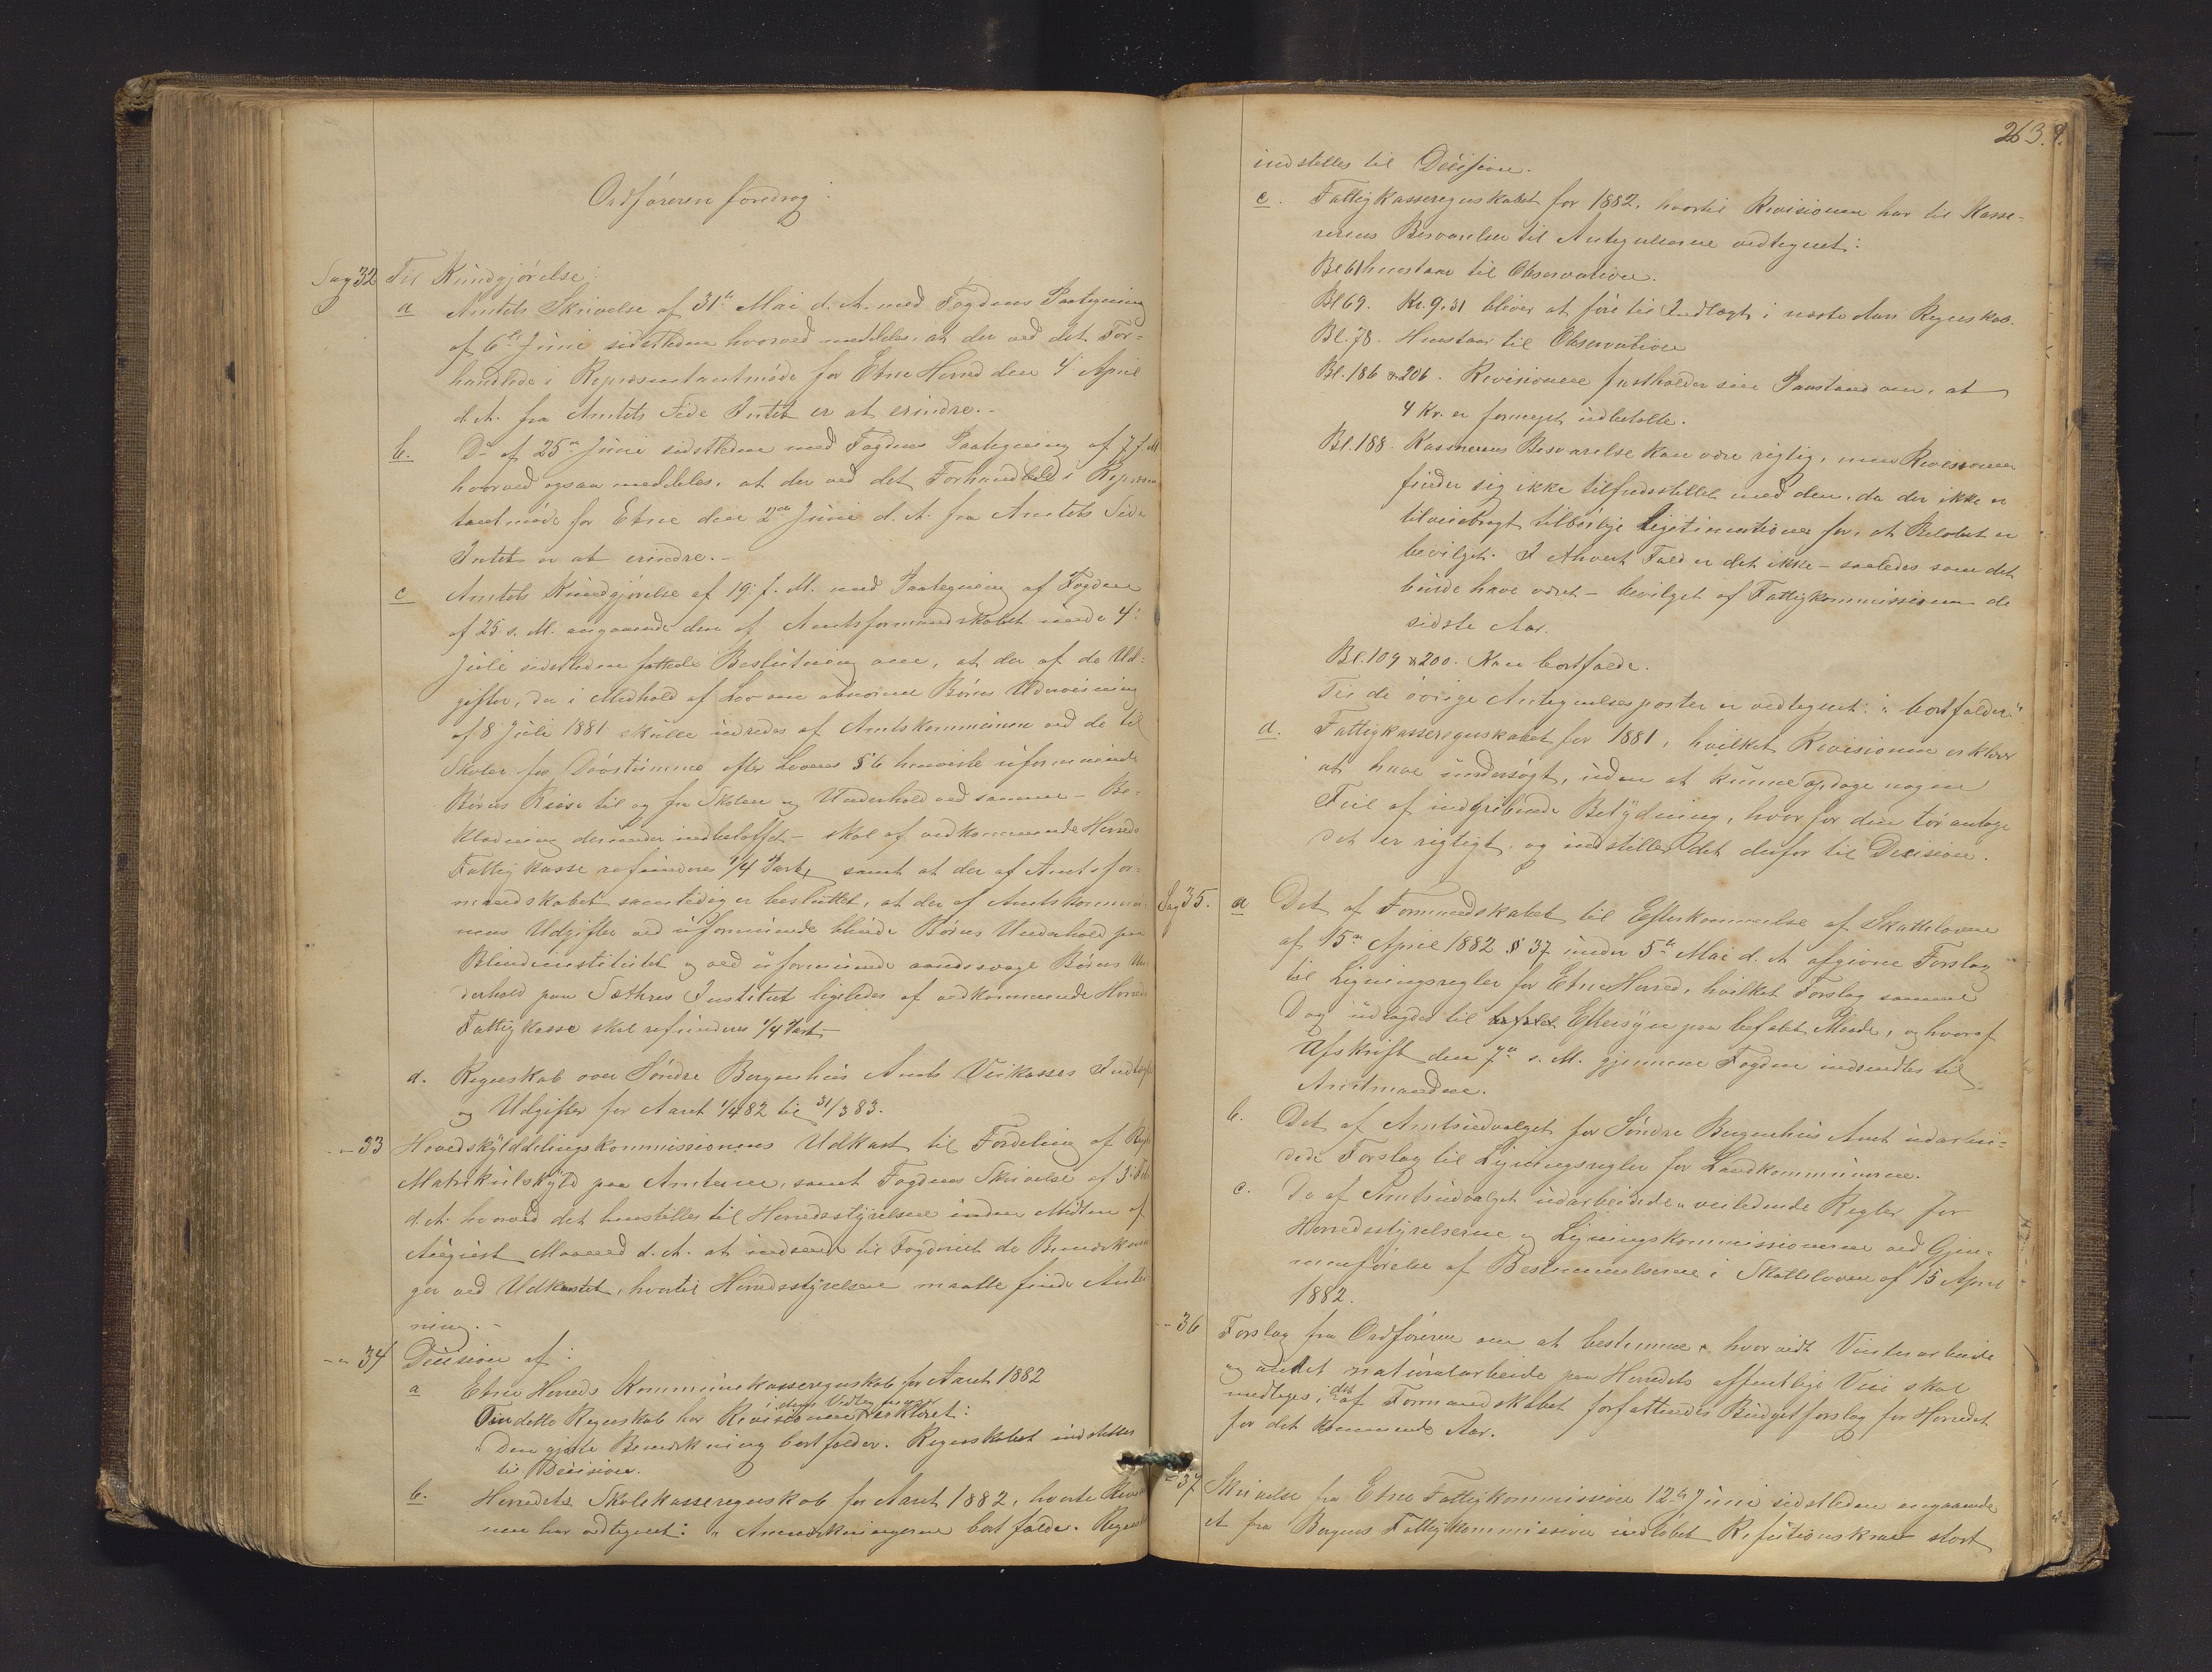 Ordføreren foredrog:
Sag 32 Til Kundgjørelse:
a Amtets Skrivelse af 31te Mai d. A. med Fogdens Paategning
af 6te Juni sidstleden hvorved meddeles, at der ved det For-
handlede i Repræsentantmøde for Etne Herred den 4 April
d. A. fra Amtets Side Intet er at erindre.-
b. Do af 25de Juni sidstleden med Fogdens Paategning af 7 f. M
hvorved ogsaa meddeles, at der ved det Forhandlede i Repræsen
tantmøde for Etne den 2den Juni d. A. fra Amtets Side
Intet er at erindre.-
c Amtets Kundgjørelse af 19. f. M. med Paategning af Fogden
af 25 s. M. angaaende den af Amtsformandskabet under 4.
Juli sidstleden fattede Beslutning om, at der af de Ud-
gifter, der i Medhold af Lov om abnorme Børns Undervisning
af 8 Juli 1881 skulle udredes af Amtskommunen ved de til
Skoler for Døvstumme efter Lovens § 6 henviste uformuende
Børns Reise til og fra Skolen og Underhold ved samme - Be-
klædning derunder indbefattet - skal af vedkommende Herreds
Fattigkasse refunderes 1/4 Part, samt at der af Amtsfor-
mandskabet samtidig er besluttet, at der af Amtskommu-
nens Udgifter ved uformuende blinde Børns Underhold paa
Blindeinstitutet og ved uformuende aandssvage Børns Un-
derhold paa Sæthres Institut ligeledes af vedkommende Herreds
Fattigkasse skal refunderes 1/4 Part -
d. Regnskab over Søndre Bergenhus Amts Veikasses Indtægt
og Udgifter for Aaret 1/4 82 til 31/3 83.
-"- 33 Hovedskylddelingskommissionens Udkast til Fordeling af Rigets
Matrikulskyld paa Amterne, samt Fogdens Skrivelse af
d. A. hvorved det henstilles til Herredsstyrelsen inden Midten af
August Maaned d. A. at indsende til Fogderiet de Bemærknin
ger ved Udkastet, hvortil Herredsstyrelsen maatte finde Anled
ning.-
-"- 34 Decision af:
a Etne Herreds Kommunekasseregnskab for Aaret 1882
i dens Vedtegninger
Til dette Regnskab har Revisionen erklæret:
"Den gjorte Bemærkning bortfalder. Regnskabet indstilles
til Decision.
b. Herredets Skolekasseregnskab for Aaret 1882, hvortil Revisio
nen har vedtegnet: "Anmærkningerne bortfalde. Regnskabet
263. 9.
indstilles til Decision.
c. Fattigkasseregnskabet for 1882, hvortil Revisionen har til Kasse-
rerens Besvarelser til Antegnelserne vedtegnet:
Bl 61 henstaar til Observation.
Bl 69. Kr. 9,31 bliver at føre til Indtægt i næste Aars Regnskab.
Bl. 78. Henstaar til Observation
Bl. 186 & 206. Revisionen fastholder sin Paastand om, at
4 Kr. er formeget udbetalte.
Bl. 188. Kassererens Besvarelse kan være rigtig, men Revisionen
finder sig ikke tilfredsstillet med den, da der ikke er
tilveiebragt tilbørlig Legitimation for, at Beløbet er
bevilget. I ethvert Fald er det ikke - saaledes som det
burde have været - bevilget af Fattigkommissionen de
sidste Aar.
Bl. 109 & 200. Kan bortfalde.
Til de øvrige Antegnelsesposter er vedtegnet: "bortfalder."
d. Fattigkasseregnskabet for 1881, hvilket Revisionen erklærer
at have undersøgt, uden at kunne opdage nogen
Feil af indgribende Betydning, hvorfor den tør antage
det er rigtigt, og indstiller det derfor til Decision.
Sag 35. a Det af Formandskabet til Efterkommelse af Skatteloven
af 15de April 1882 § 37 under 5te Mai d. A afgivne Forslag
til Ligningsregler for Etne Herred, hvilket Forslag samme
Dag udlagdes til Eftersyn paa befalet Maade, og hvoraf
Afskrift den 7de s. M. gjennem Fogden indsendtes til
Amtmanden.
b. Det af Amtsudvalget for Søndre Bergenhus Amt udarbei-
dede Forslag til Ligningsregler for Landkommunerne.
c. De af Amtsudvalget udarbeidede "veiledende Regler for
Herredsstyrelserne og Ligningskommissionerne ved Gjen-
nemførelse af Bestemmelserne i Skatteloven af 15 April
1882.
-"- 36 Forslag fra Ordføreren om at bestemme, hvorvidt Vinterarbeide
og andet naturalarbeide paa Herredets offentlige Veie skal
medtages i det af Formandskabet forfattendes Budgetforslag for Herredet
for det kommende Aar.
-"- 37 Skrivelse fra Etne Fattigkommission 12te Juni sidstleden angaaende
et fra Bergens Fattigkommission indløbet Refusionskrav stort